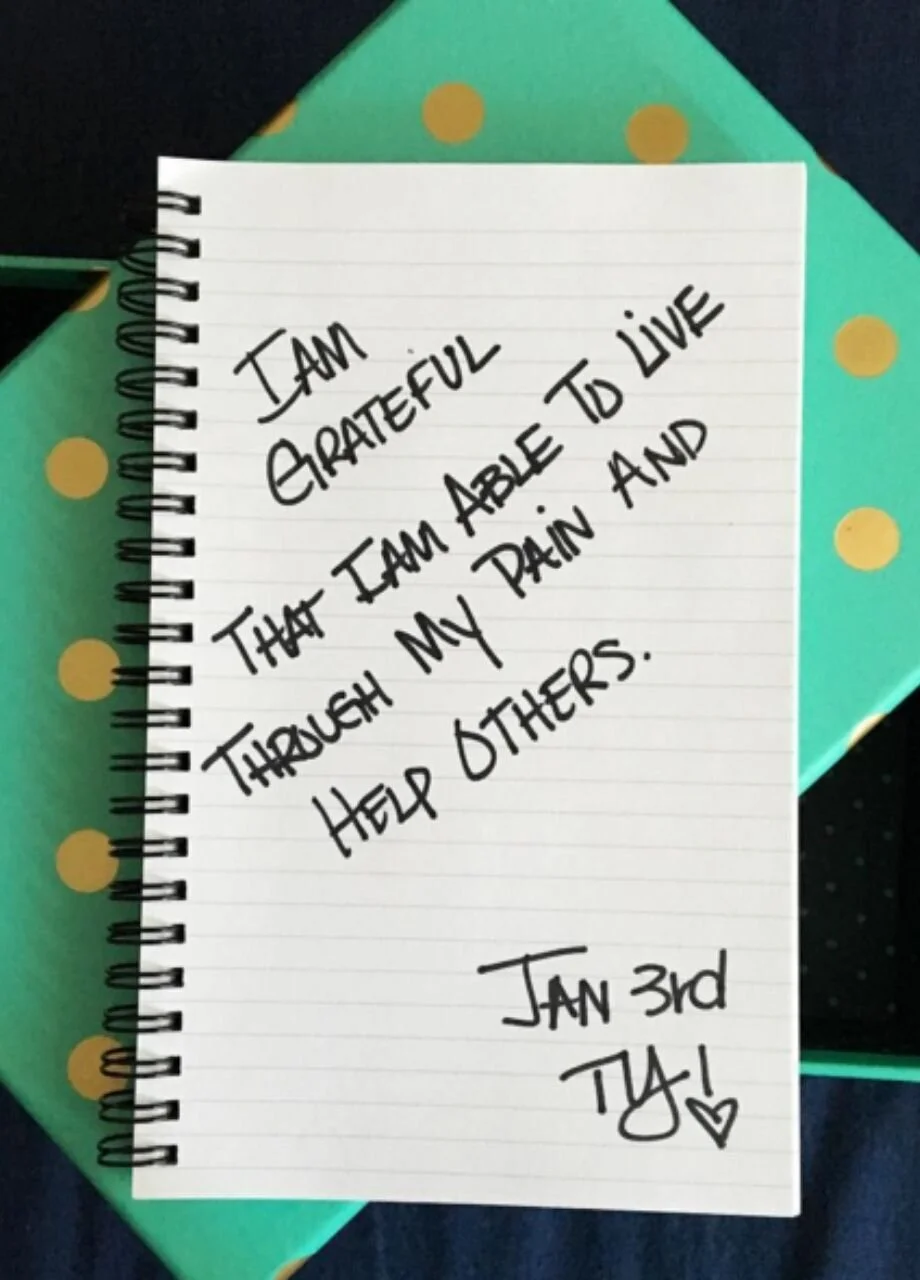 I AM
GRATEFUL
THAT I AM ABLE TO LIVE
THROUGH MY PAIN AND
HELP OTHERS.
JAN 3rd
TY!♡